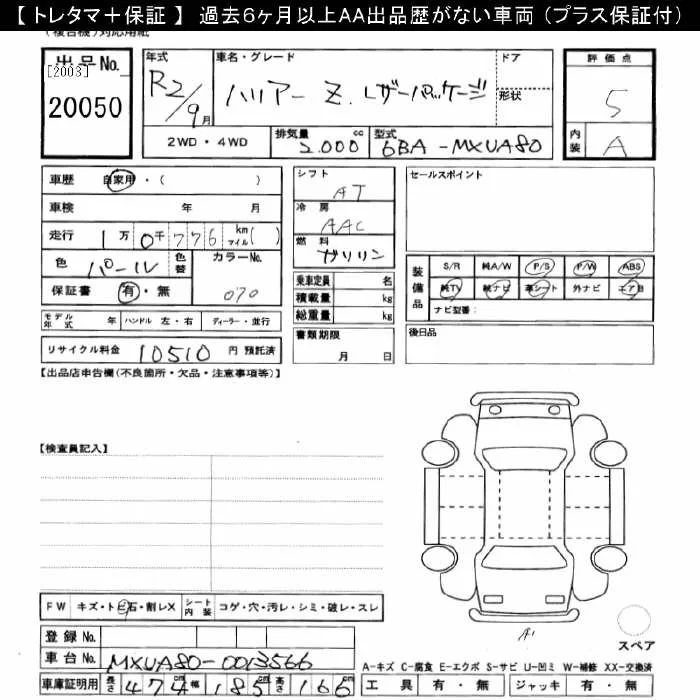 【 トレタマ＋保証 】 過去６ヶ月以上ＡＡ出品歴がない車両（プラス保証付）
(複合機)対応用紙
出品No. [2003] 20050
年式 R2/9月
車名・グレード ハリアー Z. レザーパッケージ
ドア 形状
評価点 5
内装 A
2WD・4WD
排気量 2.000 cc
型式 6BA-MXUA80
車歴 自家用・( )
シフト AT
セールスポイント
車検 年 月
冷房 AAC
走行 1万0千776 km マイル( )
燃料 ガソリン
色 パール 色替
カラーNo. 070
装備品 S/R 純A/W P/S P/W ABS
乗車定員 名
純TV 純ナビ 革シート 外ナビ エアB
保証書 有・無
積載量 kg
ナビ型番：
モデル年式 年 ハンドル 左・右 ディーラー・並行
総重量 kg
リサイクル料金 10510 円 預託済
書類期限 月 日
後日品
【出品店申告欄(不良箇所・欠品・注意事項等)】
【検査員記入】
FW キズ・トビ石・割レX シート内装 コゲ・穴・汚レ・シミ・破レ・スレ
登録 No.
A1
スペア
車台 No. MXUA80-0013566
A-キズ C-腐食 E-エクボ S-サビ U-凹ミ W-補修 XX-交換済
車庫証明用 長さ 474cm 幅 185cm 高さ 166cm
工具 有・無 ジャッキ 有・無